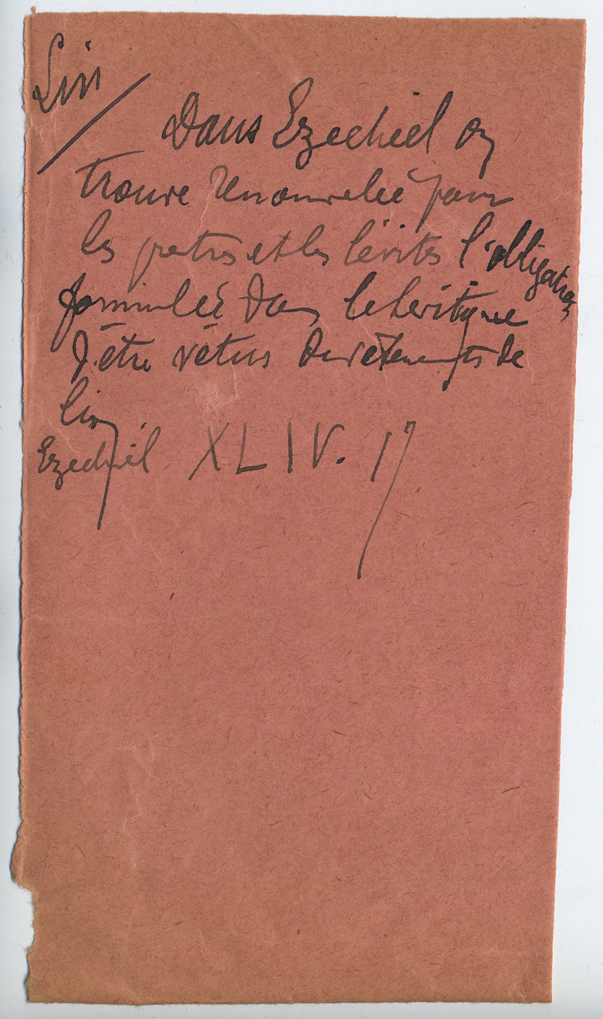 Lin
Dans Ezechiel on
trouve renouvelée pour
les pretres et les lévites l'obligation
formulée dans le Levitique
d'être vétus de vêtements de
lin
Ezechiel XLIV. 17